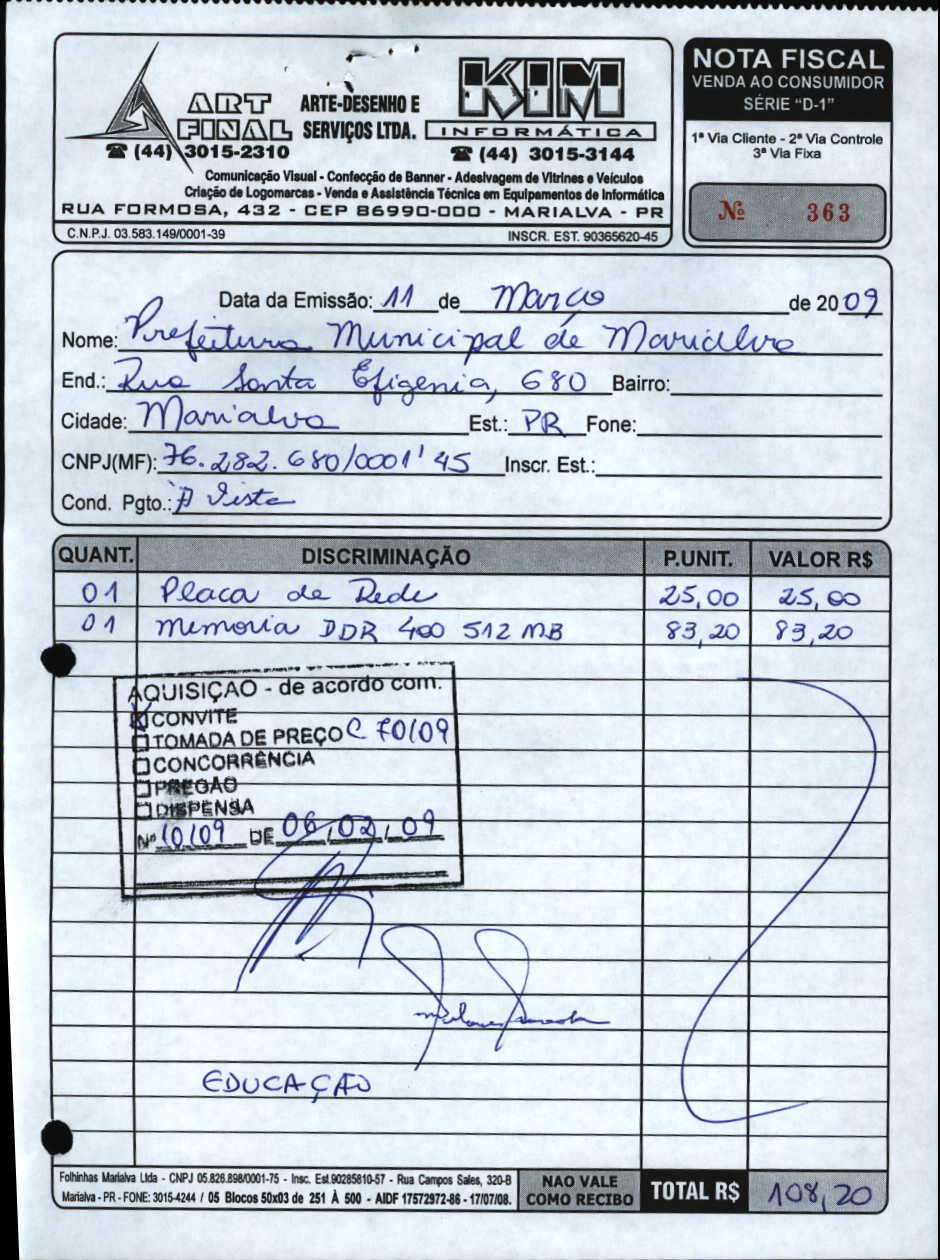 ART FINAL
☎ (44) 3015-2310
ARTE-DESENHO E
SERVIÇOS LTDA.
KIM
INFORMÁTICA
☎ (44) 3015-3144
Comunicação Visual - Confecção de Banner - Adesivagem de Vitrines e Veículos
Criação de Logomarcas - Venda e Assistência Técnica em Equipamentos de Informática
RUA FORMOSA, 432 - CEP 86990-000 - MARIALVA - PR
C.N.P.J. 03.583.149/0001-39 INSCR. EST. 90365620-45
NOTA FISCAL
VENDA AO CONSUMIDOR
SÉRIE “D-1”
1ª Via Cliente - 2ª Via Controle
3ª Via Fixa
Nº 363
Data da Emissão: 11 de Março de 2009
Nome: Prefeitura Municipal de Marialva
End.: Rua Santa Efigenia, 680 Bairro:
Cidade: Marialva Est.: PR Fone:
CNPJ(MF): 76.282.680/0001'45 Inscr. Est.:
Cond. Pgto.: A Vista
QUANT. DISCRIMINAÇÃO P.UNIT. VALOR R$
01 Placa de Rede 25,00 25,00
01 memoria DDR 400 512 MB 83,20 83,20
AQUISIÇAO - de acordo com:
X CONVITE
TOMADA DE PREÇO C 70/09
CONCORRENCIA
PREGAO
DISPENSA
Nº 10/09 DE 06/02/09
EDUCAÇÃO
Folhinhas Marialva Ltda - CNPJ 05.826.898/0001-75 - Insc. Est.90285810-57 - Rua Campos Sales, 320-B
Marialva - PR - FONE: 3015-4244 / 05 Blocos 50x03 de 251 À 500 - AIDF 17572972-86 - 17/07/08.
NAO VALE
COMO RECIBO
TOTAL R$ 108,20